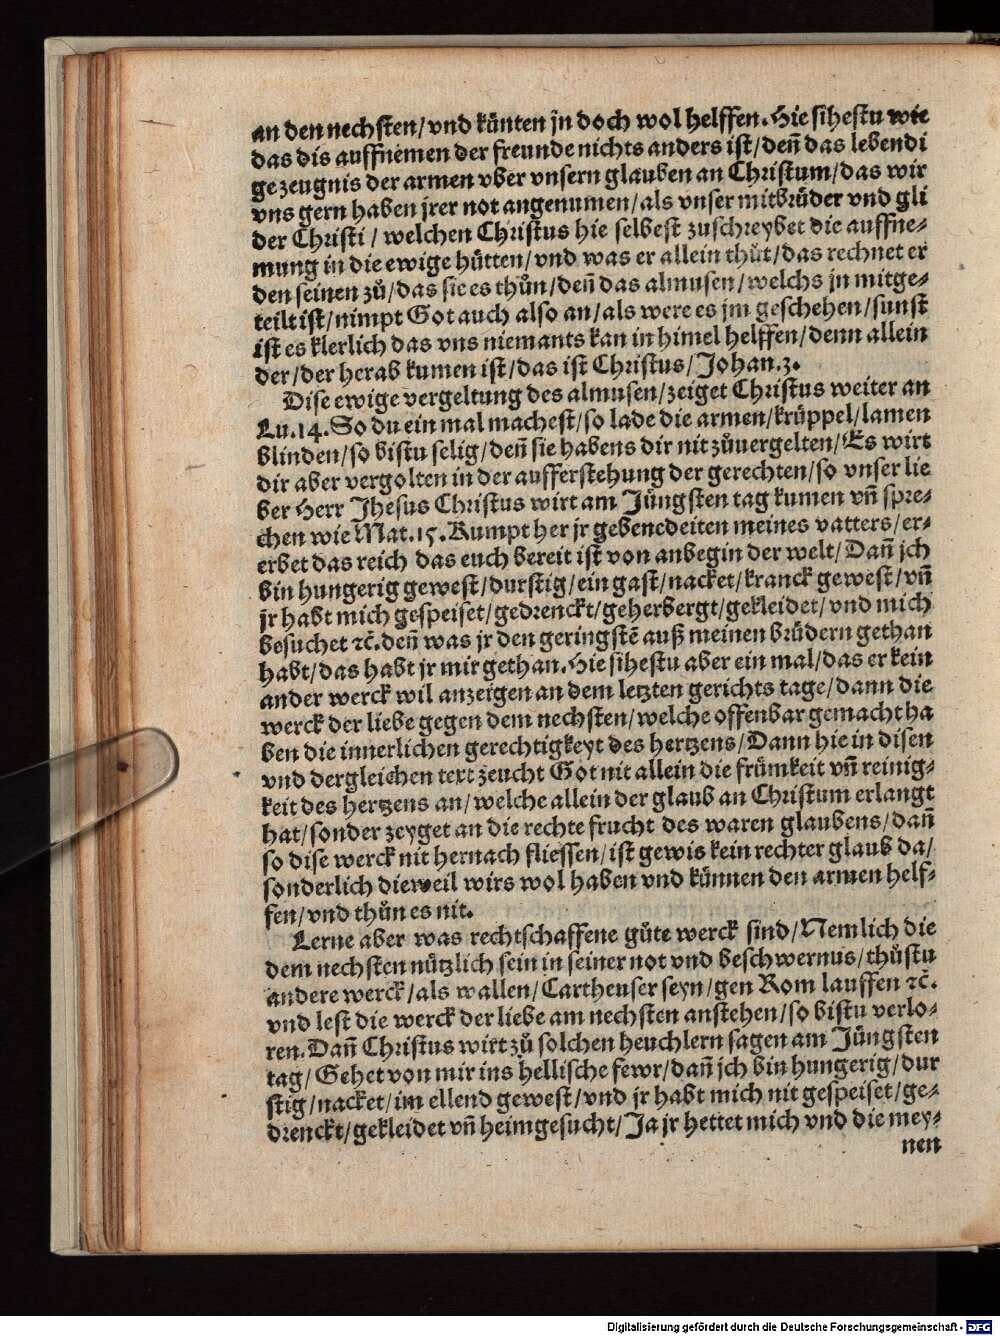 an den nechsten/vnd künten jn doch wol helffen. Hie sihestu wie
das dis auffnemen der freunde nichts anders ist/deñ das lebendi
ge zeugnis der armen vber vnsern glauben an Christum/das wir
vns gern haben jrer not angenumen/als vnser mitbrüder vnd gli
der Christi/welchen Christus hie selbest zuschreybet die auffne-
mung in die ewige hütten/vnd was er allein thůt/das rechnet er
den seinen zů/das sie es thůn/deñ das almusen/welchs jn mitge-
teilt ist/nimpt Got auch also an/als were es jm geschehen/sunst
ist es klerlich das vns niemants kan in himel helffen/denn allein
der/der herab kumen ist/das ist Christus/Johan.3.
Dise ewige vergeltung des almusen/zeiget Christus weiter an
Lu.14. So du ein mal machest/so lade die armen/krüppel/lamen
blinden/so bistu selig/deñ sie habens dir nit zůuergelten/Es wirt
dir aber vergolten in der aufferstehung der gerechten/so vnser lie
ber Herr Jhesus Christus wirt am Jüngsten tag kumen vñ spre-
chen wie Mat.15. Kumpt her jr gebenedeiten meines vatters/er-
erbet das reich das euch bereit ist von anbegin der welt/Dañ jch
bin hungerig gewest/durstig/ein gast/nacket/kranck gewest/vñ
jr habt mich gespeiset/gedrenckt/geherbergt/gekleidet/vnd mich
besuchet ꝛc̃. deñ was jr den geringstẽ auß meinen brüdern gethan
habt/das habt jr mir gethan. Hie sihestu aber ein mal/das er kein
ander werck wil anzeigen an dem letzten gerichts tage/dann die
werck der liebe gegen dem nechsten/welche offenbar gemacht ha
ben die innerlichen gerechtigkeyt des hertzens/Dann hie in disen
vnd dergleichen text zeucht Got nit allein die frümkeit vñ reinig-
keit des hertzens an/welche allein der glaub an Christum erlangt
hat/sonder zeyget an die rechte frucht des waren glaubens/dañ
so dise werck nit hernach fliessen/ist gewis kein rechter glaub da/
sonderlich dieweil wirs wol haben vnd künnen den armen helf-
fen/vnd thůn es nit.
Lerne aber was rechtschaffene gůte werck sind/Nemlich die
dem nechsten nützlich sein in seiner not vnd beschwernus/thůstu
andere werck/als wallen/Cartheuser seyn/gen Rom lauffen ꝛc̃.
vnd lest die werck der liebe am nechsten anstehen/so bistu verlo-
ren. Dañ Christus wirt zů solchen heuchlern sagen am Jüngsten
tag/Gehet von mir ins hellische fewr/dañ jch bin hungerig/dur
stig/nacket/im ellend gewest/vnd jr habt mich nit gespeiset/ge-
drenckt/gekleidet vñ heimgesucht/Ja jr hettet mich vnd die mey-
nen
Digitalisierung gefördert durch die Deutsche Forschungsgemeinschaft - DFG